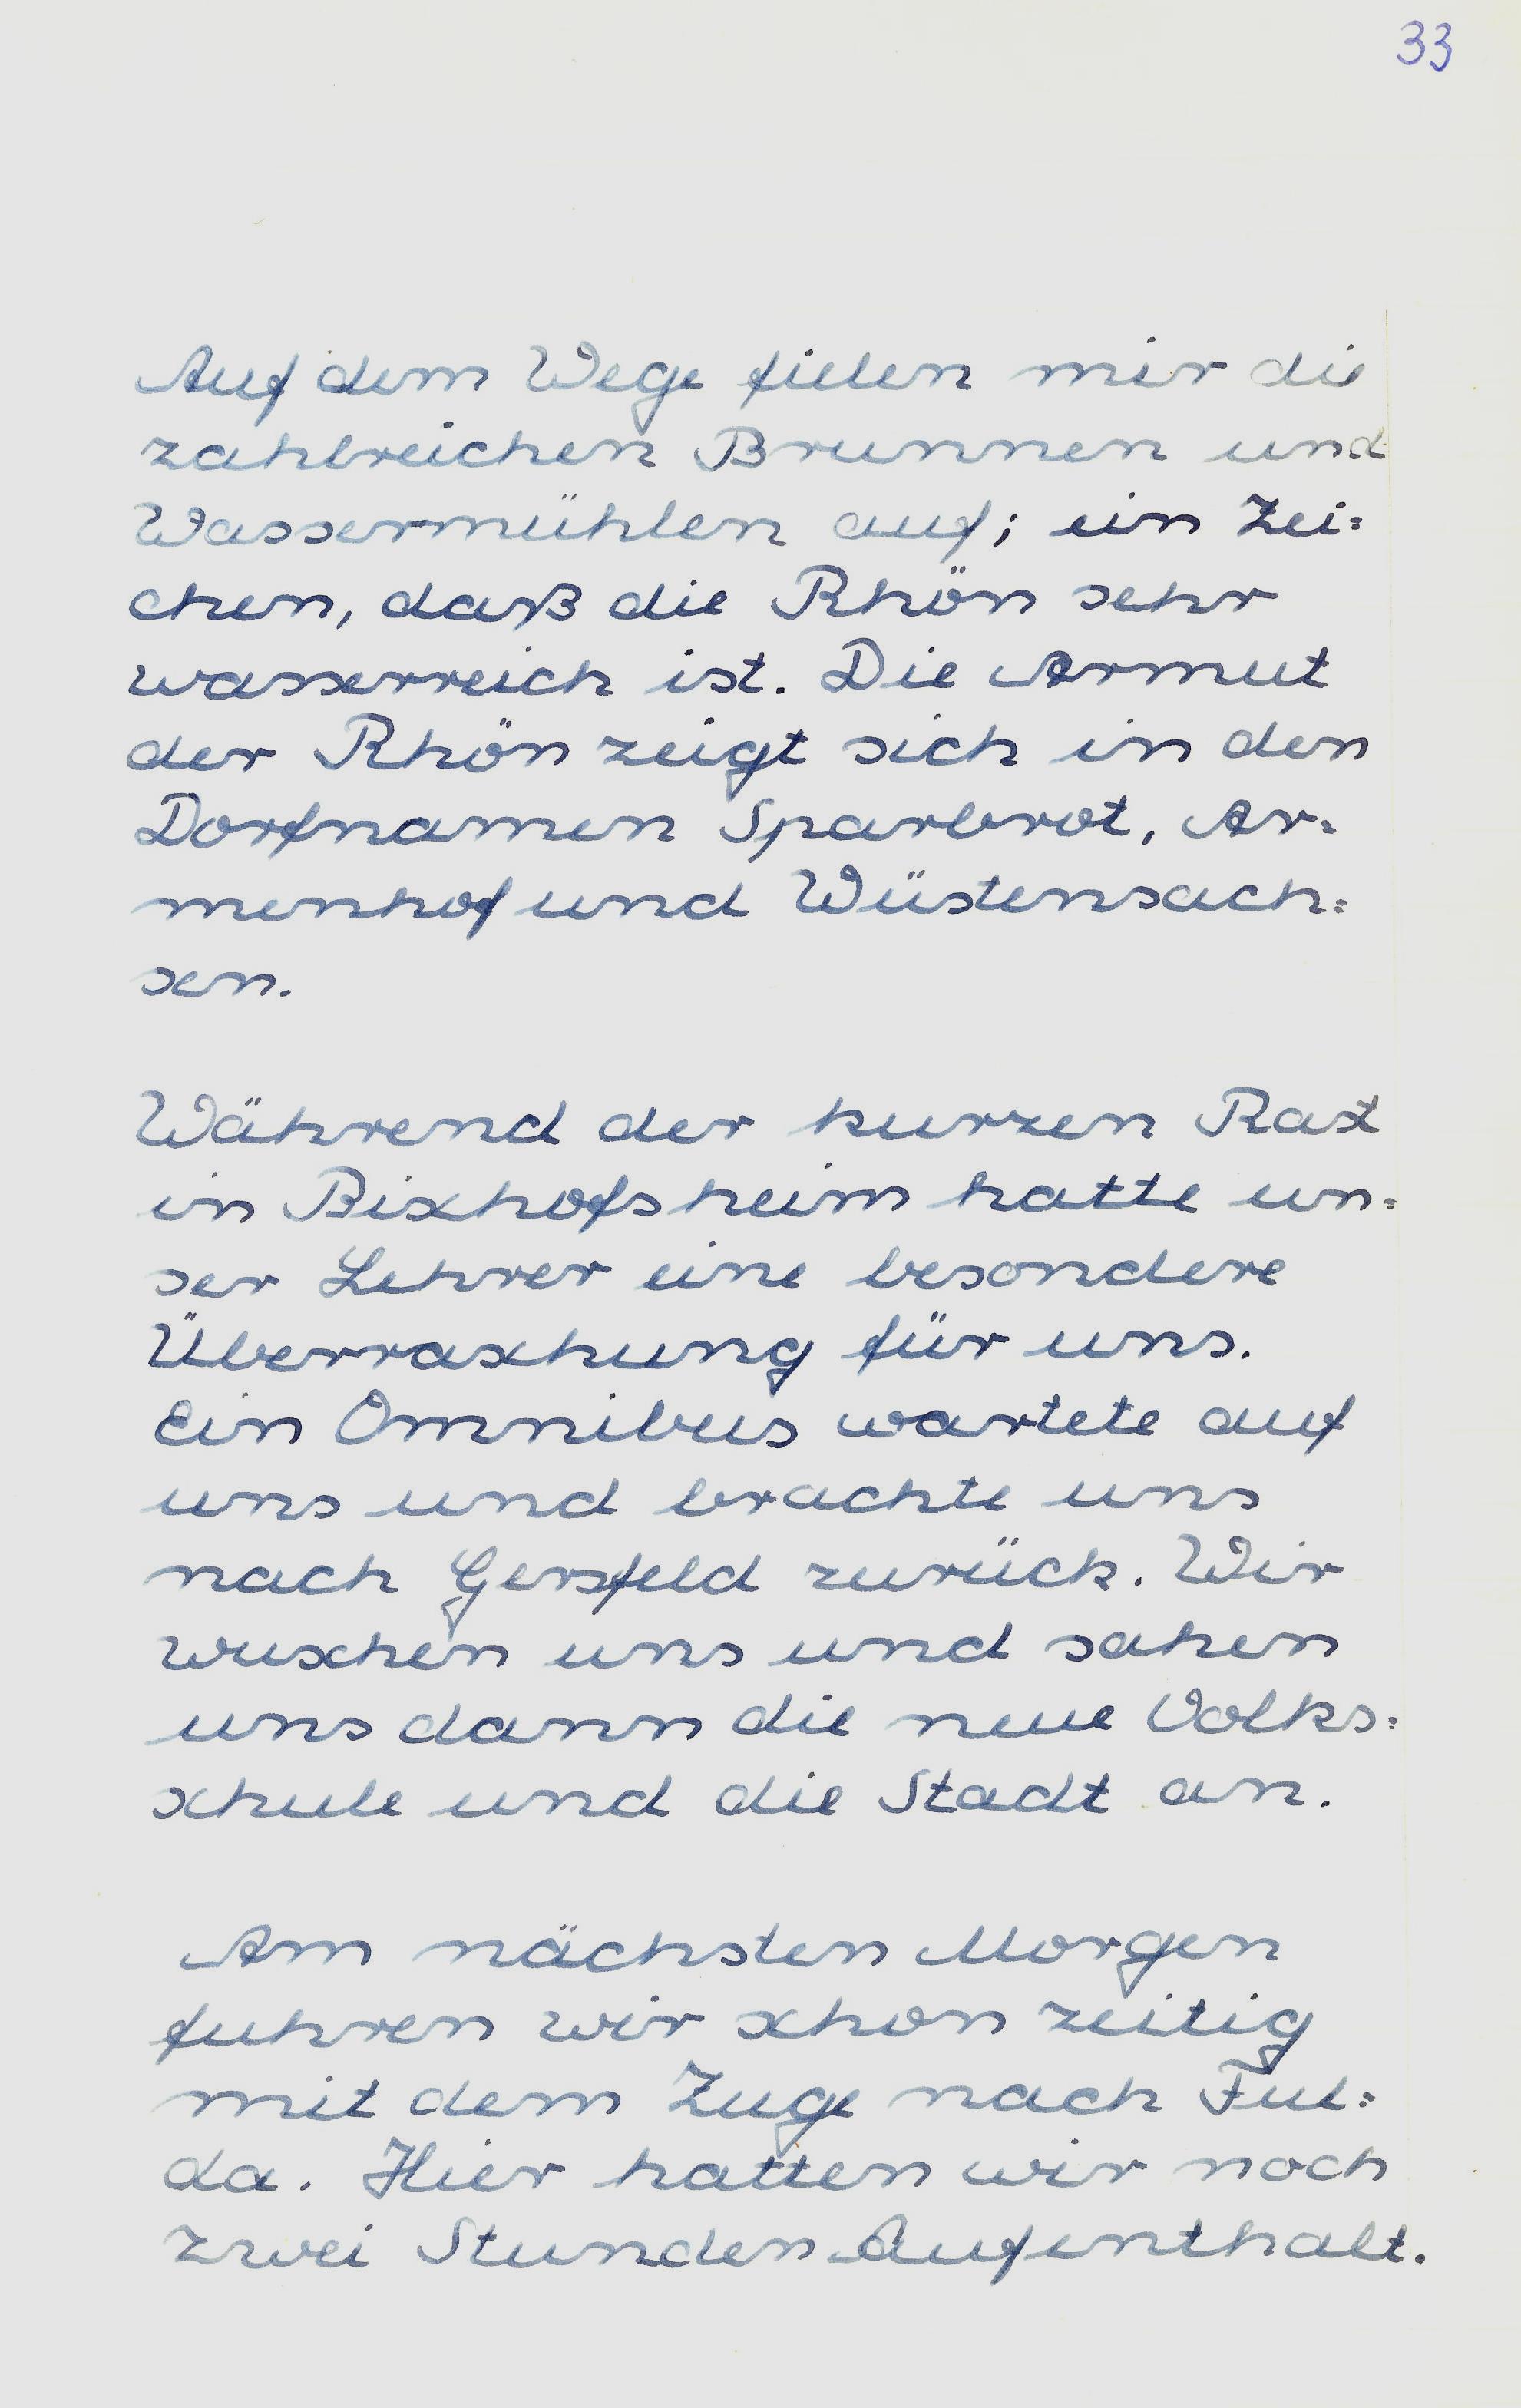 33
Auf dem Wege fielen mir die
zahlreichen Brunnen und
Wassermühlen auf; ein Zei=
chen, daß die Rhön sehr
wasserreich ist. Die Armut
der Rhön zeigt sich in den
Dorfnamen Sparbrot, Ar=
menhof und Wüstensach=
sen.
Während der kurzen Rast
in Bischofsheim hatte un=
ser Lehrer eine besondere
Überraschung für uns.
Ein Omnibus wartete auf
uns und brachte uns
nach Gersfeld zurück. Wir
wuschen uns und sahen
uns dann die neue Volks=
schule und die Stadt an.
Am nächsten Morgen
fuhren wir schon zeitig
mit dem Zuge nach Ful=
da. Hier hatten wir noch
zwei Stunden Aufenthalt.